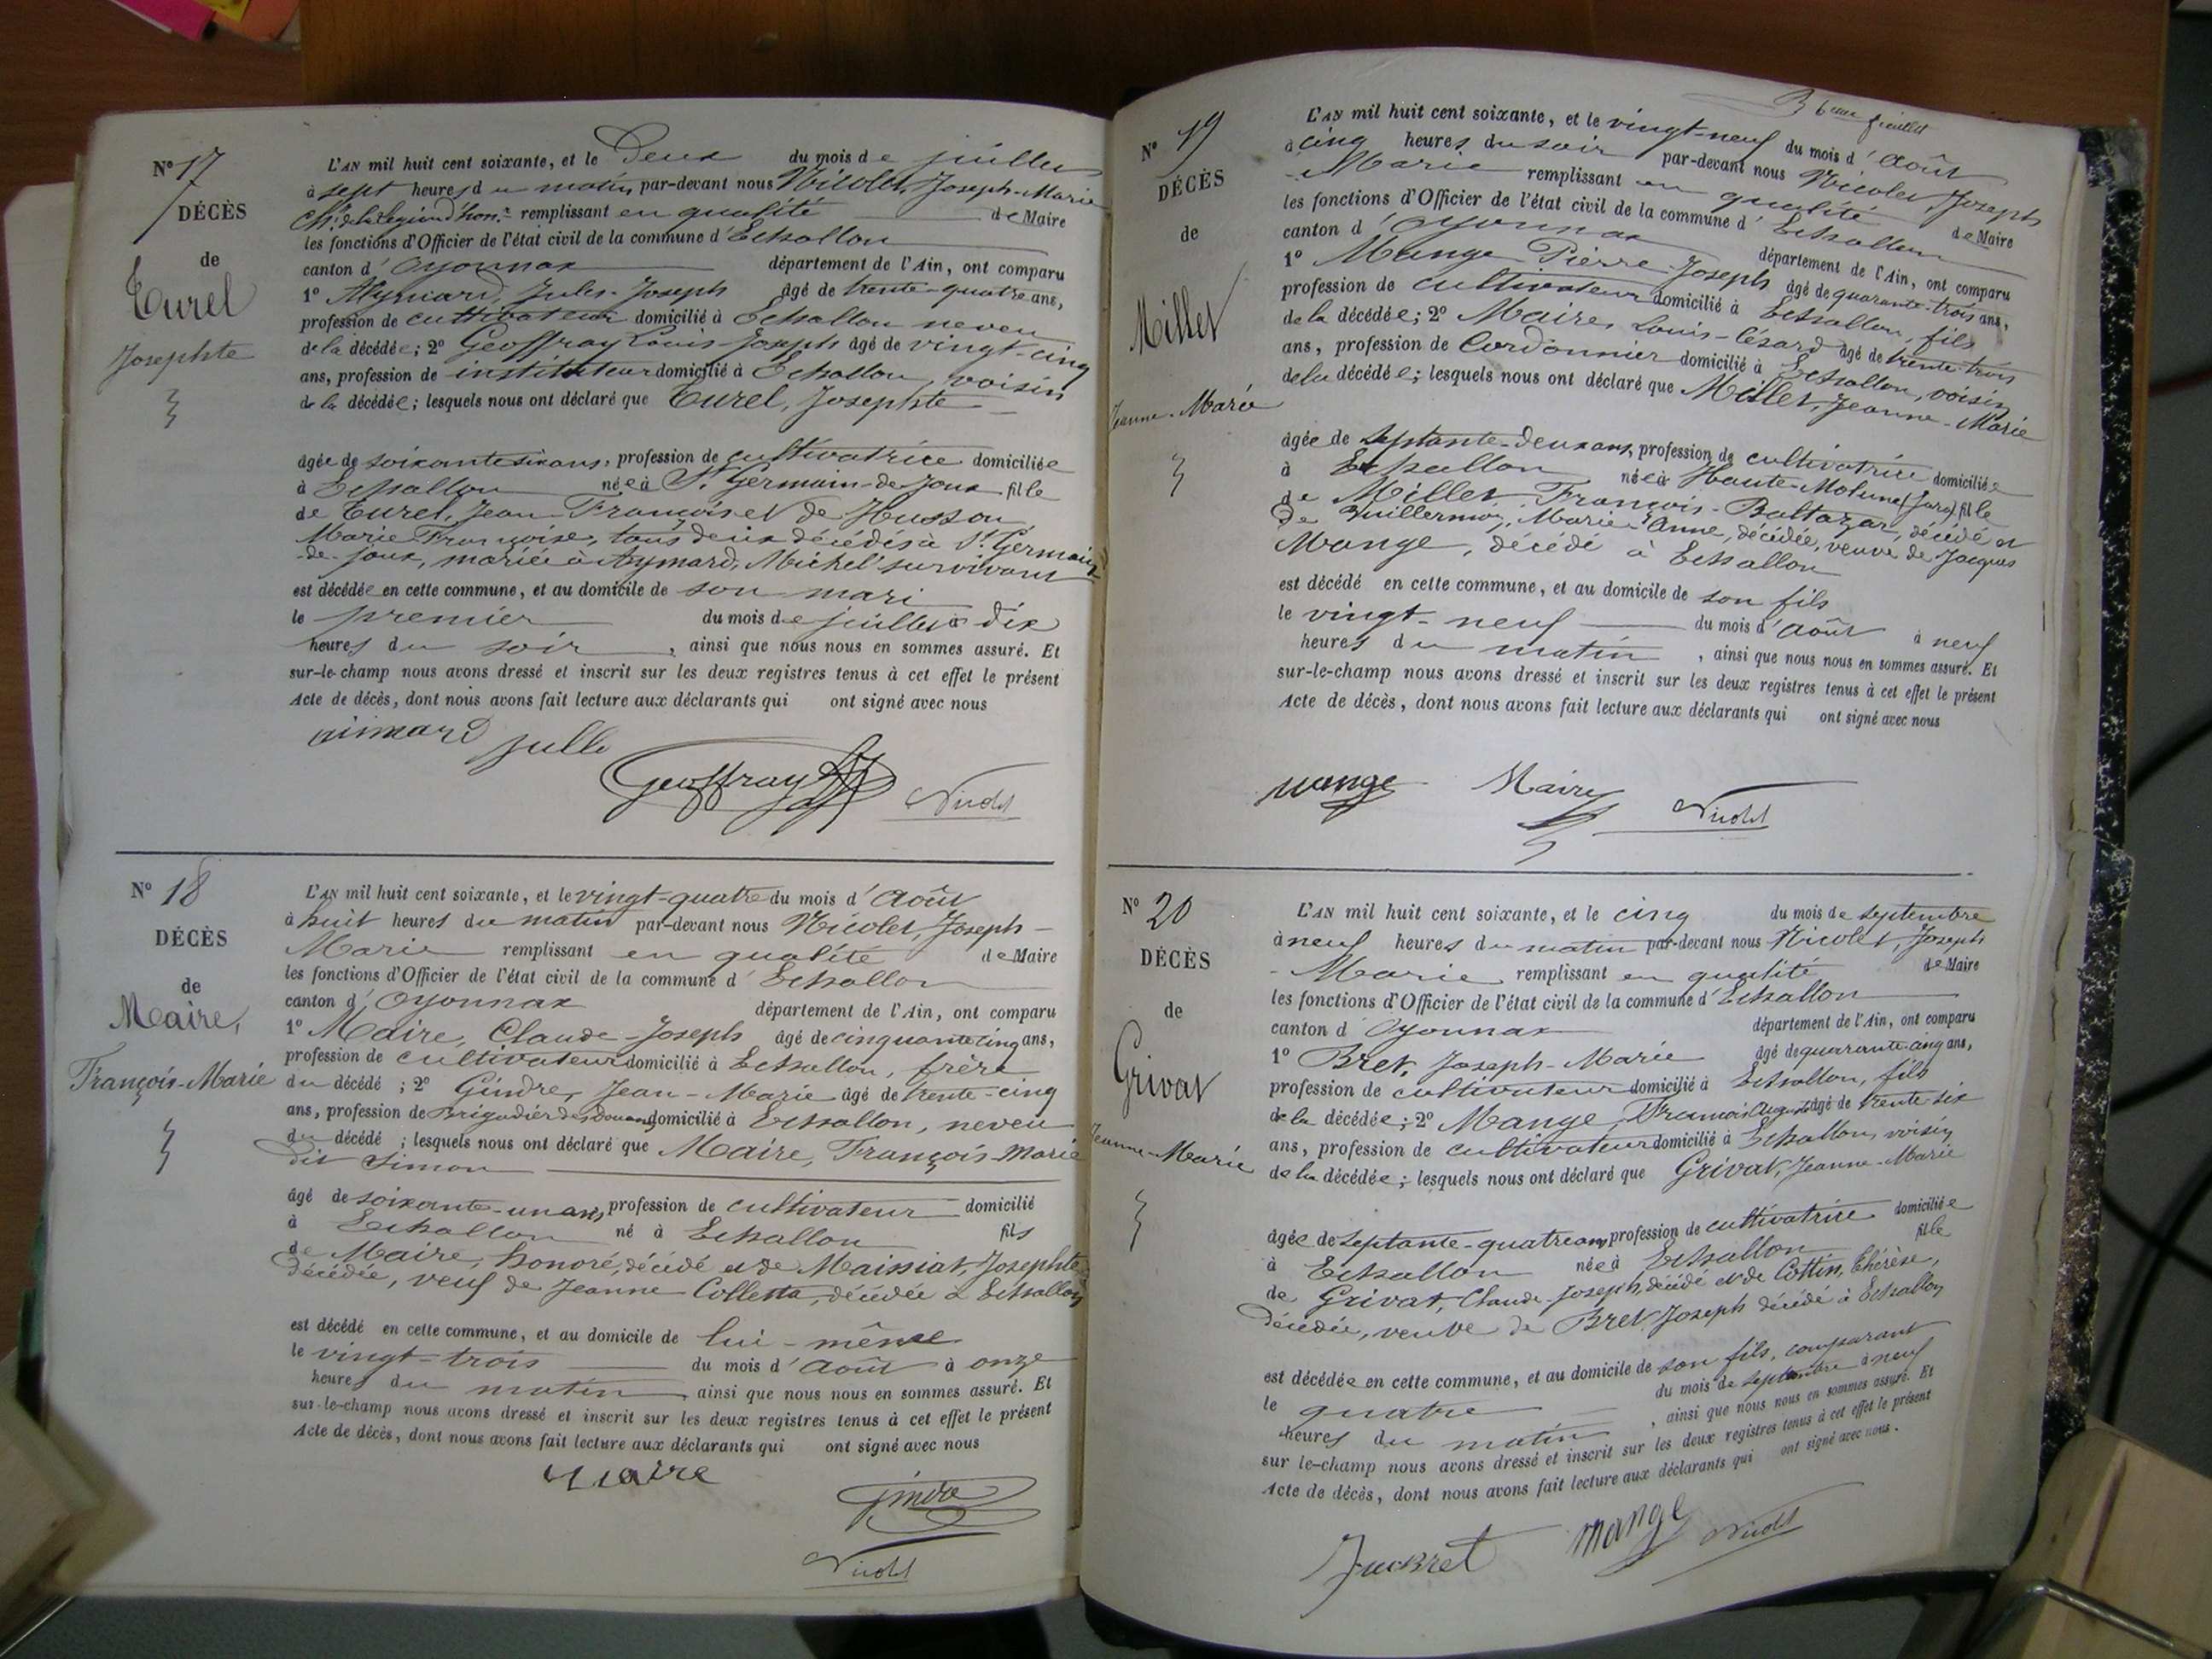 N° 17
DÉCÈS
de
Turel
Josephte
L'AN mil huit cent soixante, et le Deux du mois de juillet
à sept heures du matin, par-devant nous Nicolet, Joseph-Marie
Chr. de la Légion d'honr. remplissant en qualité de Maire
les fonctions d'Officier de l'état civil de la commune d'Echallon
canton d'Oyonnax département de l'Ain, ont comparu
1° Aymard, Jules-Joseph âgé de trente-quatre ans,
profession de cultivateur domicilié à Echallon neveu
de la décédée; 2° Geoffray Louis-Joseph âgé de vingt-cinq
ans, profession de instituteur domicilié à Echallon, voisin
de la décédée; lesquels nous ont déclaré que Turel, Josephte
âgée de soixante six ans, profession de cultivatrice domiciliée
à Echallon née à St. Germain-de-Joux fille
de Turel, Jean-François et de Husson
Marie Françoise, tous deux décédés à St. Germain-
-de-joux, mariée à Aymard, Michel survivant
est décédée en cette commune, et au domicile de son mari
le premier du mois de juillet à dix
heures du soir, ainsi que nous nous en sommes assuré. Et
sur-le-champ nous avons dressé et inscrit sur les deux registres tenus à cet effet le présent
Acte de décès, dont nous avons fait lecture aux déclarants qui ont signé avec nous
aimard julle
Geoffray
Nicolet
N° 18
DÉCÈS
de
Maire,
François-Marie
L'AN mil huit cent soixante, et le vingt-quatre du mois d'Août
à huit heures du matin par-devant nous Nicolet, Joseph-
Marie remplissant en qualité de Maire
les fonctions d'Officier de l'état civil de la commune d'Echallon
canton d'Oyonnax département de l'Ain, ont comparu
1° Maire, Claude-Joseph âgé de cinquante cinq ans,
profession de cultivateur domicilié à Echallon, frère
du décédé; 2° Gindre, Jean-Marie âgé de trente-cinq
ans, profession de Brigadier des Douanes domicilié à Echallon, neveu
du décédé; lesquels nous ont déclaré que Maire, François Marie
dit Simon
âgé de soixante-un ans, profession de cultivateur domicilié
à Echallon né à Echallon fils
de Maire, honoré, décédé et de Maissiat, Josephte
décédée, veuf de Jeanne Colletta, décédée à Echallon
est décédé en cette commune, et au domicile de lui-même
le vingt-trois du mois d'Août à onze
heures du matin, ainsi que nous nous en sommes assuré. Et
sur-le-champ nous avons dressé et inscrit sur les deux registres tenus à cet effet le présent
Acte de décès, dont nous avons fait lecture aux déclarants qui ont signé avec nous
Maire
Gindre
Nicolet
36ème feuillet
N° 19
DÉCÈS
de
Millet
Jeanne-Marie
L'AN mil huit cent soixante, et le vingt-neuf du mois d'Août
à cinq heures du soir par-devant nous Nicolet, Joseph
-Marie remplissant en qualité de Maire
les fonctions d'Officier de l'état civil de la commune d'Echallon
canton d'Oyonnax département de l'Ain, ont comparu
1° Mange Pierre-Joseph âgé de quarante-trois ans,
profession de cultivateur domicilié à Echallon, fils
de la décédée; 2° Maire, Louis-Césard âgé de trente-trois
ans, profession de Cordonnier domicilié à Echallon, voisin
de la décédée; lesquels nous ont déclaré que Millet, Jeanne-Marie
âgée de septante-deux ans, profession de cultivatrice domiciliée
à Echallon née à Haute-Molune (Jura) fille
de Millet François-Baltazar, décédé et
de Guillermoz, Marie Anne, décédée, veuve de Jacques
Mange, décédé à Echallon
est décédé en cette commune, et au domicile de son fils
le vingt-neuf du mois d'Août à neuf
heures du matin, ainsi que nous nous en sommes assuré. Et
sur-le-champ nous avons dressé et inscrit sur les deux registres tenus à cet effet le présent
Acte de décès, dont nous avons fait lecture aux déclarants qui ont signé avec nous
mange Maire Nicolet
N° 20
DÉCÈS
de
Grivat
Jeanne-Marie
L'AN mil huit cent soixante, et le cinq du mois de septembre
à neuf heures du matin par-devant nous Nicolet, Joseph
-Marie remplissant en qualité de Maire
les fonctions d'Officier de l'état civil de la commune d'Echallon
canton d'Oyonnax département de l'Ain, ont comparu
1° Bret, Joseph-Marie âgé de quarante-cinq ans,
profession de cultivateur domicilié à Echallon, fils
de la décédée; 2° Mange, François Auguste âgé de trente-six
ans, profession de cultivateur domicilié à Echallon, voisin
de la décédée; lesquels nous ont déclaré que Grivat, Jeanne-Marie
âgée de septante-quatre ans, profession de cultivatrice domiciliée
à Echallon née à Echallon fille
de Grivat, Claude-Joseph, décédé et de Cottin, Thérèse,
décédée, veuve de Bret Joseph décédé à Echallon
est décédée en cette commune, et au domicile de son fils, comparant
le quatre du mois de septembre à neuf
heures du matin, ainsi que nous nous en sommes assuré. Et
sur le-champ nous avons dressé et inscrit sur les deux registres tenus à cet effet le présent
Acte de décès, dont nous avons fait lecture aux déclarants qui ont signé avec nous.
Bret mange Nicolet